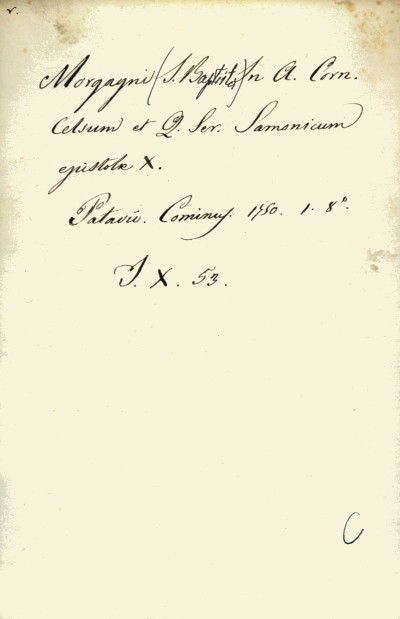 v.
Morgagni (J. Baptista) In A. Corn.
Celsum et Q. Ser. Samonicum
epistolæ X.
Patavii. Cominus. 1750. 1. 8°.
J. X. 53.
C